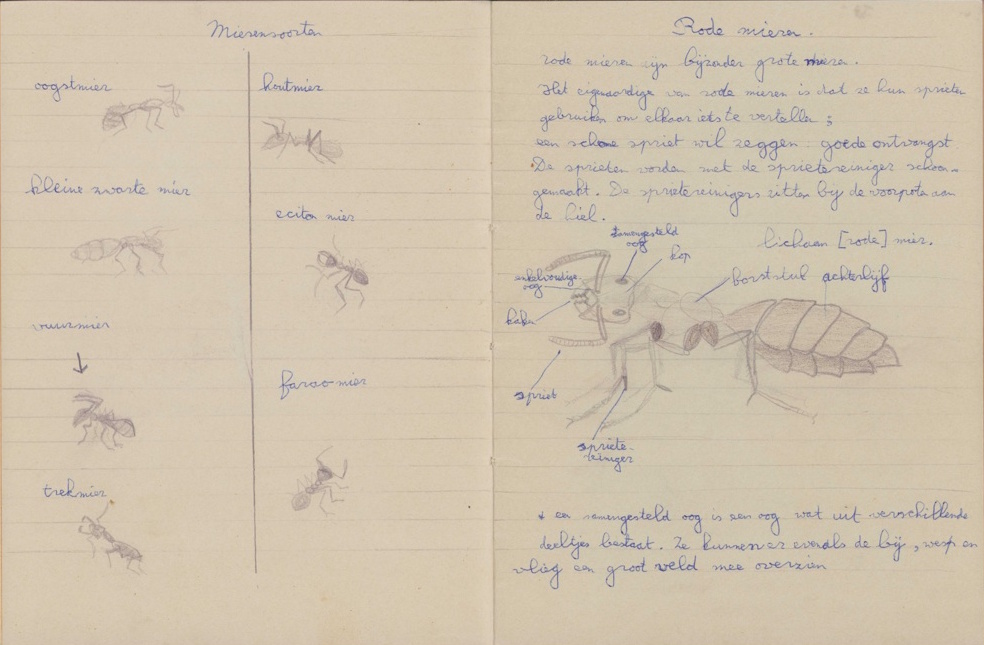 Mierensoorten
oogstmier
houtmier
kleine zwarte mier
eciton mier
vuurmier
farao-mier
trekmier
Rode mieren.
rode mieren zijn bijzonder grote mieren.
Het eigenaardige van rode mieren is dat ze hun sprieten
gebruiken om elkaar iets te vertellen ;
een schone spriet wil zeggen goede ontvangst.
De sprieten worden met de sprietereiniger schoon-
gemaakt. De sprietereinigers zitten bij de voorpoten aan
de hiel.
lichaam [rode] mier.
samengesteld
oog
kop
enkelvoudige
oog
borststuk
achterlijf
kaken
spriet
spriete-
reiniger
* een samengesteld oog is een oog wat uit verschillende
deeltjes bestaat. Ze kunnen er evenals de bij, wesp en
vlieg een groot veld mee overzien